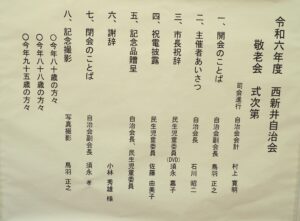 令和六年度　西新井自治会
敬老会　式次第
司会進行　自治会会計　村上 寛明
一、開会のことば　自治会副会長　鳥羽 正之
二、主催者あいさつ　自治会長　石川 昭二
三、市長祝辞　(DVD)　民生児童委員　須永 嘉子
四、祝電披露　民生児童委員　佐藤 由美子
五、記念品贈呈　自治会長、民生児童委員
六、謝辞　小林 秀雄 様
七、閉会のことば　自治会副会長　須永 孝
八、記念撮影　写真撮影　鳥羽 正之
〇今年八十歳の方々
〇今年八十八歳の方々
〇今年九十五歳の方々